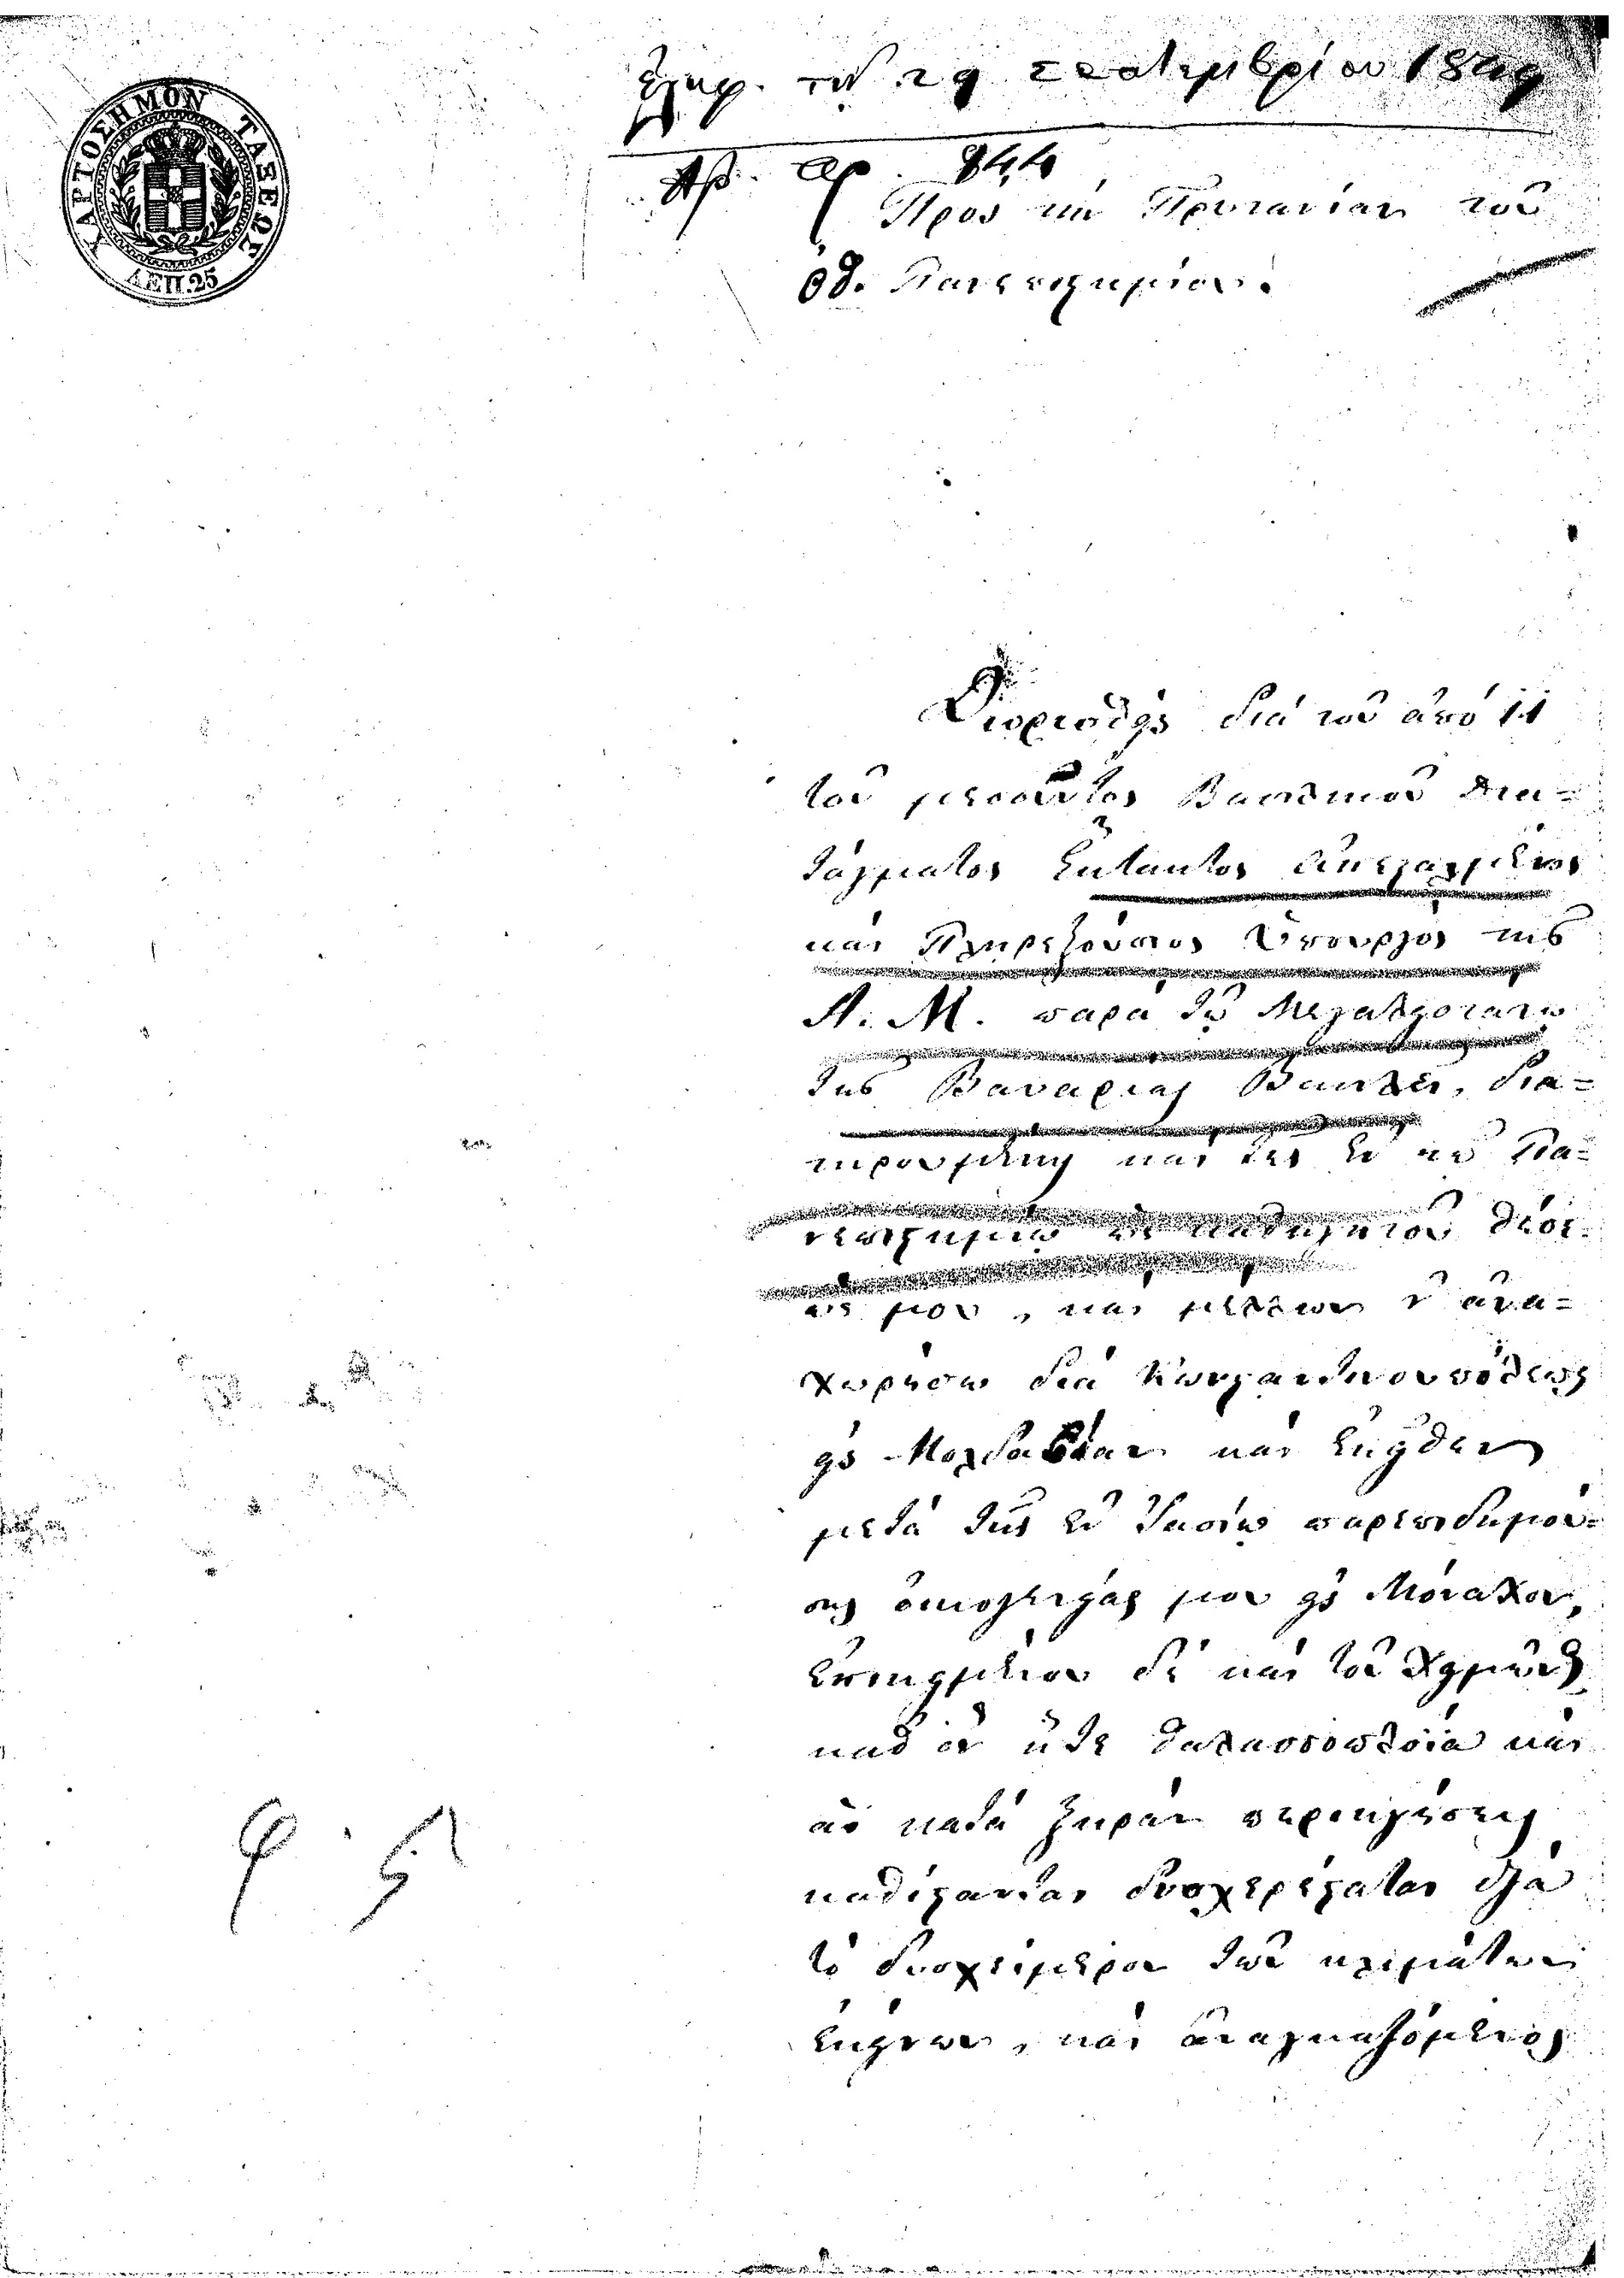 ΧΑΡΤΟΣΗΜΟΝ ΤΑΞΕΩΣ
ΛΕΠ. 25
τῇ 29 Σεπτεμβρίου 1849
Ἀρ. 844
Πρὸς τὴν Πρυτανίαν τοῦ
Ὀθ. Πανεπιστημίου.
Διορισθεὶς διὰ τοῦ ἀπὸ 11
τοῦ μεσοῦντος Βασιλικοῦ Δια-
τάγματος ἔκτακτος ἀπεσταλμένος
καὶ Πληρεξούσιος Ὑπουργὸς τῆς
Α. Μ. παρὰ τῷ Μεγαλειοτάτῳ
τῆς Βαυαρίας Βασιλεῖ, δια-
τηρουμένης καὶ τῆς ἐν τῷ Πα-
νεπιστημίῳ ὡς καθηγητοῦ θέσε-
ώς μου, καὶ μέλλων ν' ἀνα-
χωρήσω διὰ Κωνσταντινουπόλεως
εἰς Μολδαβίαν καὶ ἐκεῖθεν
μετὰ τῆς ἐν Ἰασίῳ παρεπιδημού-
σης οἰκογενείας μου εἰς Μόναχον,
ἐπικειμένου δὲ καὶ τοῦ χειμῶνος
καθ' ὃν ἥ τε θαλασσοπλοΐα καὶ
αἱ κατὰ ξηρὰν περιηγήσεις
καθίστανται δυσχερέσταται διὰ
τὸ δυσχείμερον τῶν κλιμάτων
ἐκείνων, καὶ ἀναγκαζόμενος